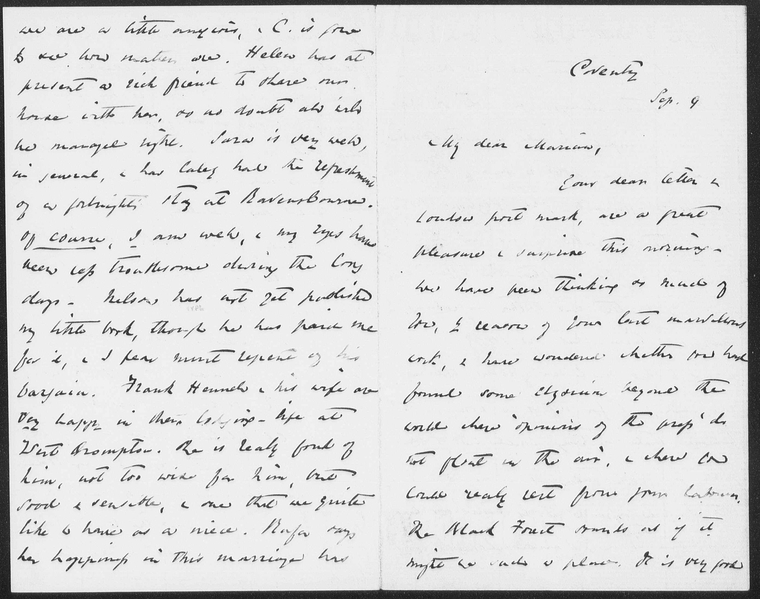 we are a little anxious, & C. is gone
to see how matters are. Helen has at
present a rich friend to share our
house with her, so no doubt all will
be managed right. Sara is very well,
in general, & has lately had the refreshment
of a fortnight's stay at Ravensbourne.
Of course, I am well, & my eyes have
been less troublesome during the long
days – Nelson has not yet published
my little book, though he has paid me
for it, & I fear must repent of his
bargain. Frank Hennell & his wife are
very happy in their lodging-life at
West Brompton. She is really fond of
him, not too wise for him, but
good & sensible, & one that we quite
like to have as a niece. Rufa says
her happiness in this marriage has
Coventry
Sep. 9
My dear Marian,
Your dear letter &
London post mark, are a great
pleasure & surprise this morning –
We have been thinking so much of
you, by reason of your last marvellous
work, & have wondered whether you had
found some Elysium beyond the
world where "opinions of the press" do
not float in the air, & where you
could really rest from your labours.
The Black Forest sounds as if it
might be such a place. It is very good